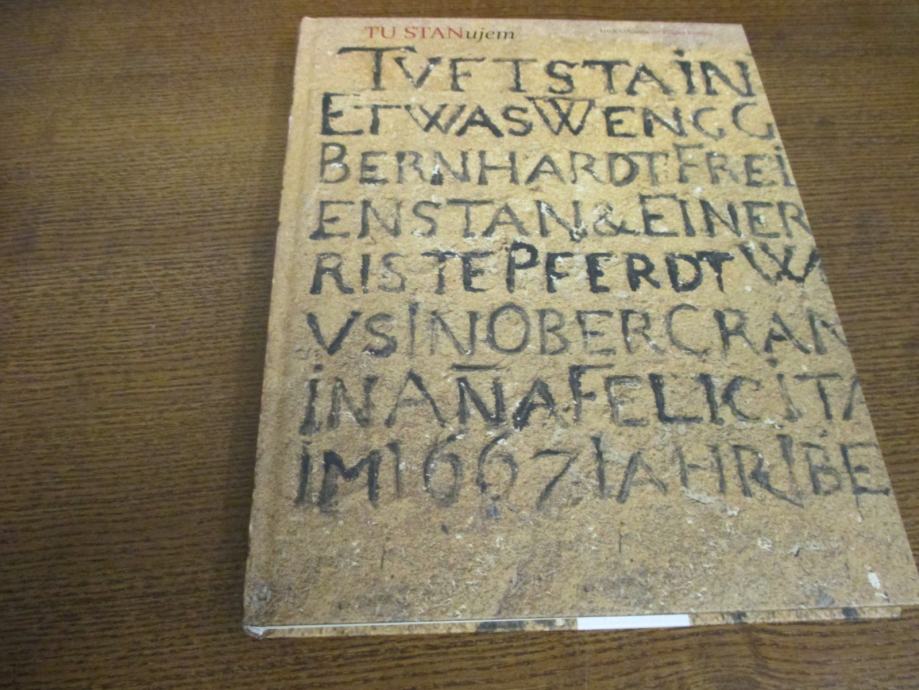 TU STANujem
TVFTSTAIN
ETWASWENGG
BERNHARDTFREI
ENSTAN&EINER
RISTEPFERDTWA
VSINOBERCRAN
INAÑAFELICITA
IM1667IAHRIBE